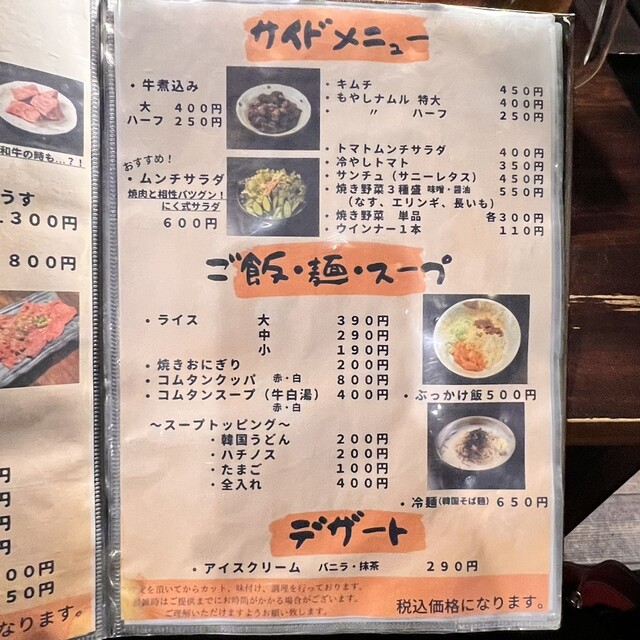 和牛の時も…?!
うす
1300円
800円
円
円
円
円
00円
50円
なります。
サイドメニュー
・牛煮込み
大 400円
ハーフ 250円
おすすめ!
・ムンチサラダ
焼肉と相性バツグン!
にく式サラダ
600円
・キムチ 450円
・もやしナムル 特大 400円
・ 〃 ハーフ 250円
・トマトムンチサラダ 400円
・冷やしトマト 350円
・サンチュ(サニーレタス) 450円
・焼き野菜3種盛 味噌・醤油 550円
(なす、エリンギ、長いも)
・焼き野菜 単品 各300円
・ウインナー1本 110円
ご飯・麺・スープ
・ライス 大 390円
中 290円
小 190円
・焼きおにぎり 200円
・コムタンクッパ 赤・白 800円
・コムタンスープ(牛白湯) 400円
赤・白
〜スープトッピング〜
・韓国うどん 200円
・ハチノス 200円
・たまご 100円
・全入れ 400円
・ぶっかけ飯500円
・冷麺(韓国そば麺) 650円
デザート
・アイスクリーム バニラ・抹茶 290円
を頂いてからカット、味付け、調理を行っております。
雑時はご提供までにお時間がかかる場合がございます。
ご理解いただけますようお願い致します。
税込価格になります。